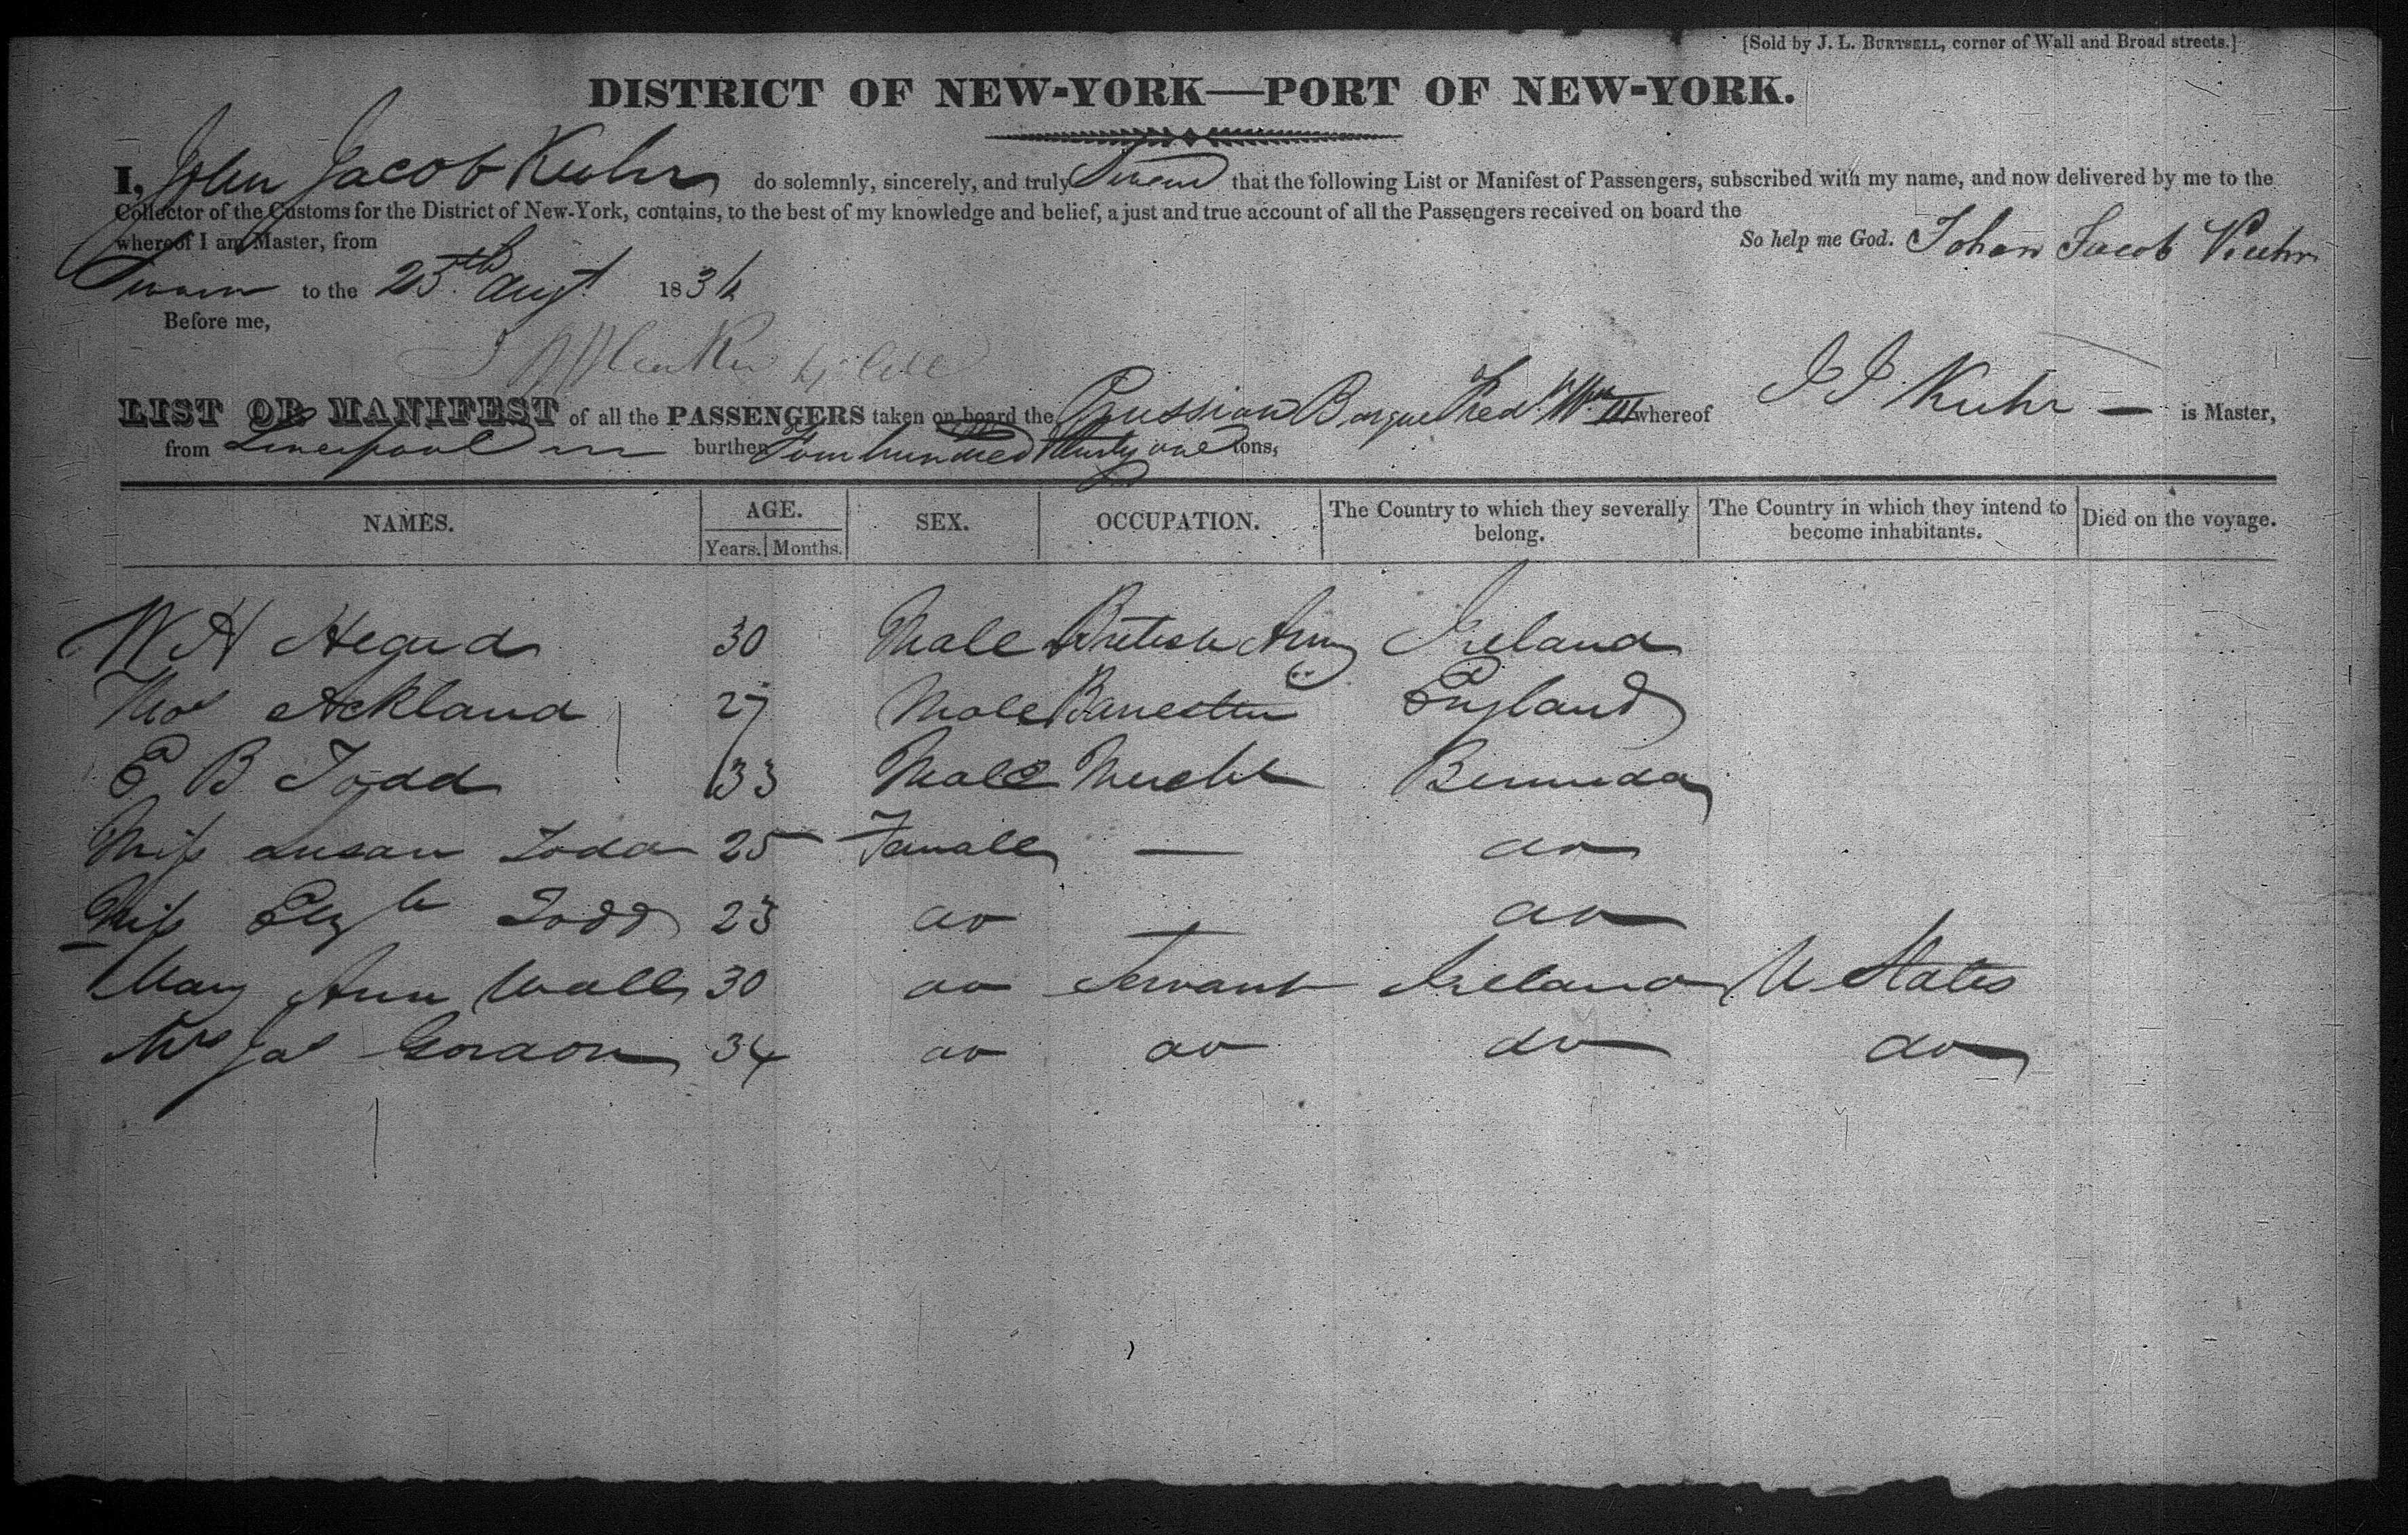 [Sold by J. L. BURTSELL, corner of Wall and Broad streets.]
DISTRICT OF NEW-YORK—PORT OF NEW-YORK.
I, John Jacob Kuhr do solemnly, sincerely, and truly Swear that the following List or Manifest of Passengers, subscribed with my name, and now delivered by me to the
Collector of the Customs for the District of New-York, contains, to the best of my knowledge and belief, a just and true account of all the Passengers received on board the
whereof I am Master, from
So help me God. Johan Jacob Kuhr
Sworn to the 25th Augt 1836
Before me,
LIST OR MANIFEST of all the PASSENGERS taken on board the Prussian Barque Fred. Wm III whereof J J Kuhr — is Master,
from Liverpool burthen Four hundred thirty one tons,
NAMES. AGE. SEX. OCCUPATION. The Country to which they severally belong. The Country in which they intend to become inhabitants. Died on the voyage.
Years. Months.
W H Heard 30 Male British Army Ireland
Thos Ackland 27 Male Barrester England
E B Todd 33 Male Mercht Bermuda
Miss Susan Todd 25 Female — do
Miss Elizth Todd 23 do — do
Mary Ann Wall 30 do Servant Ireland U States
Mrs Jas Gordon 34 do do do do